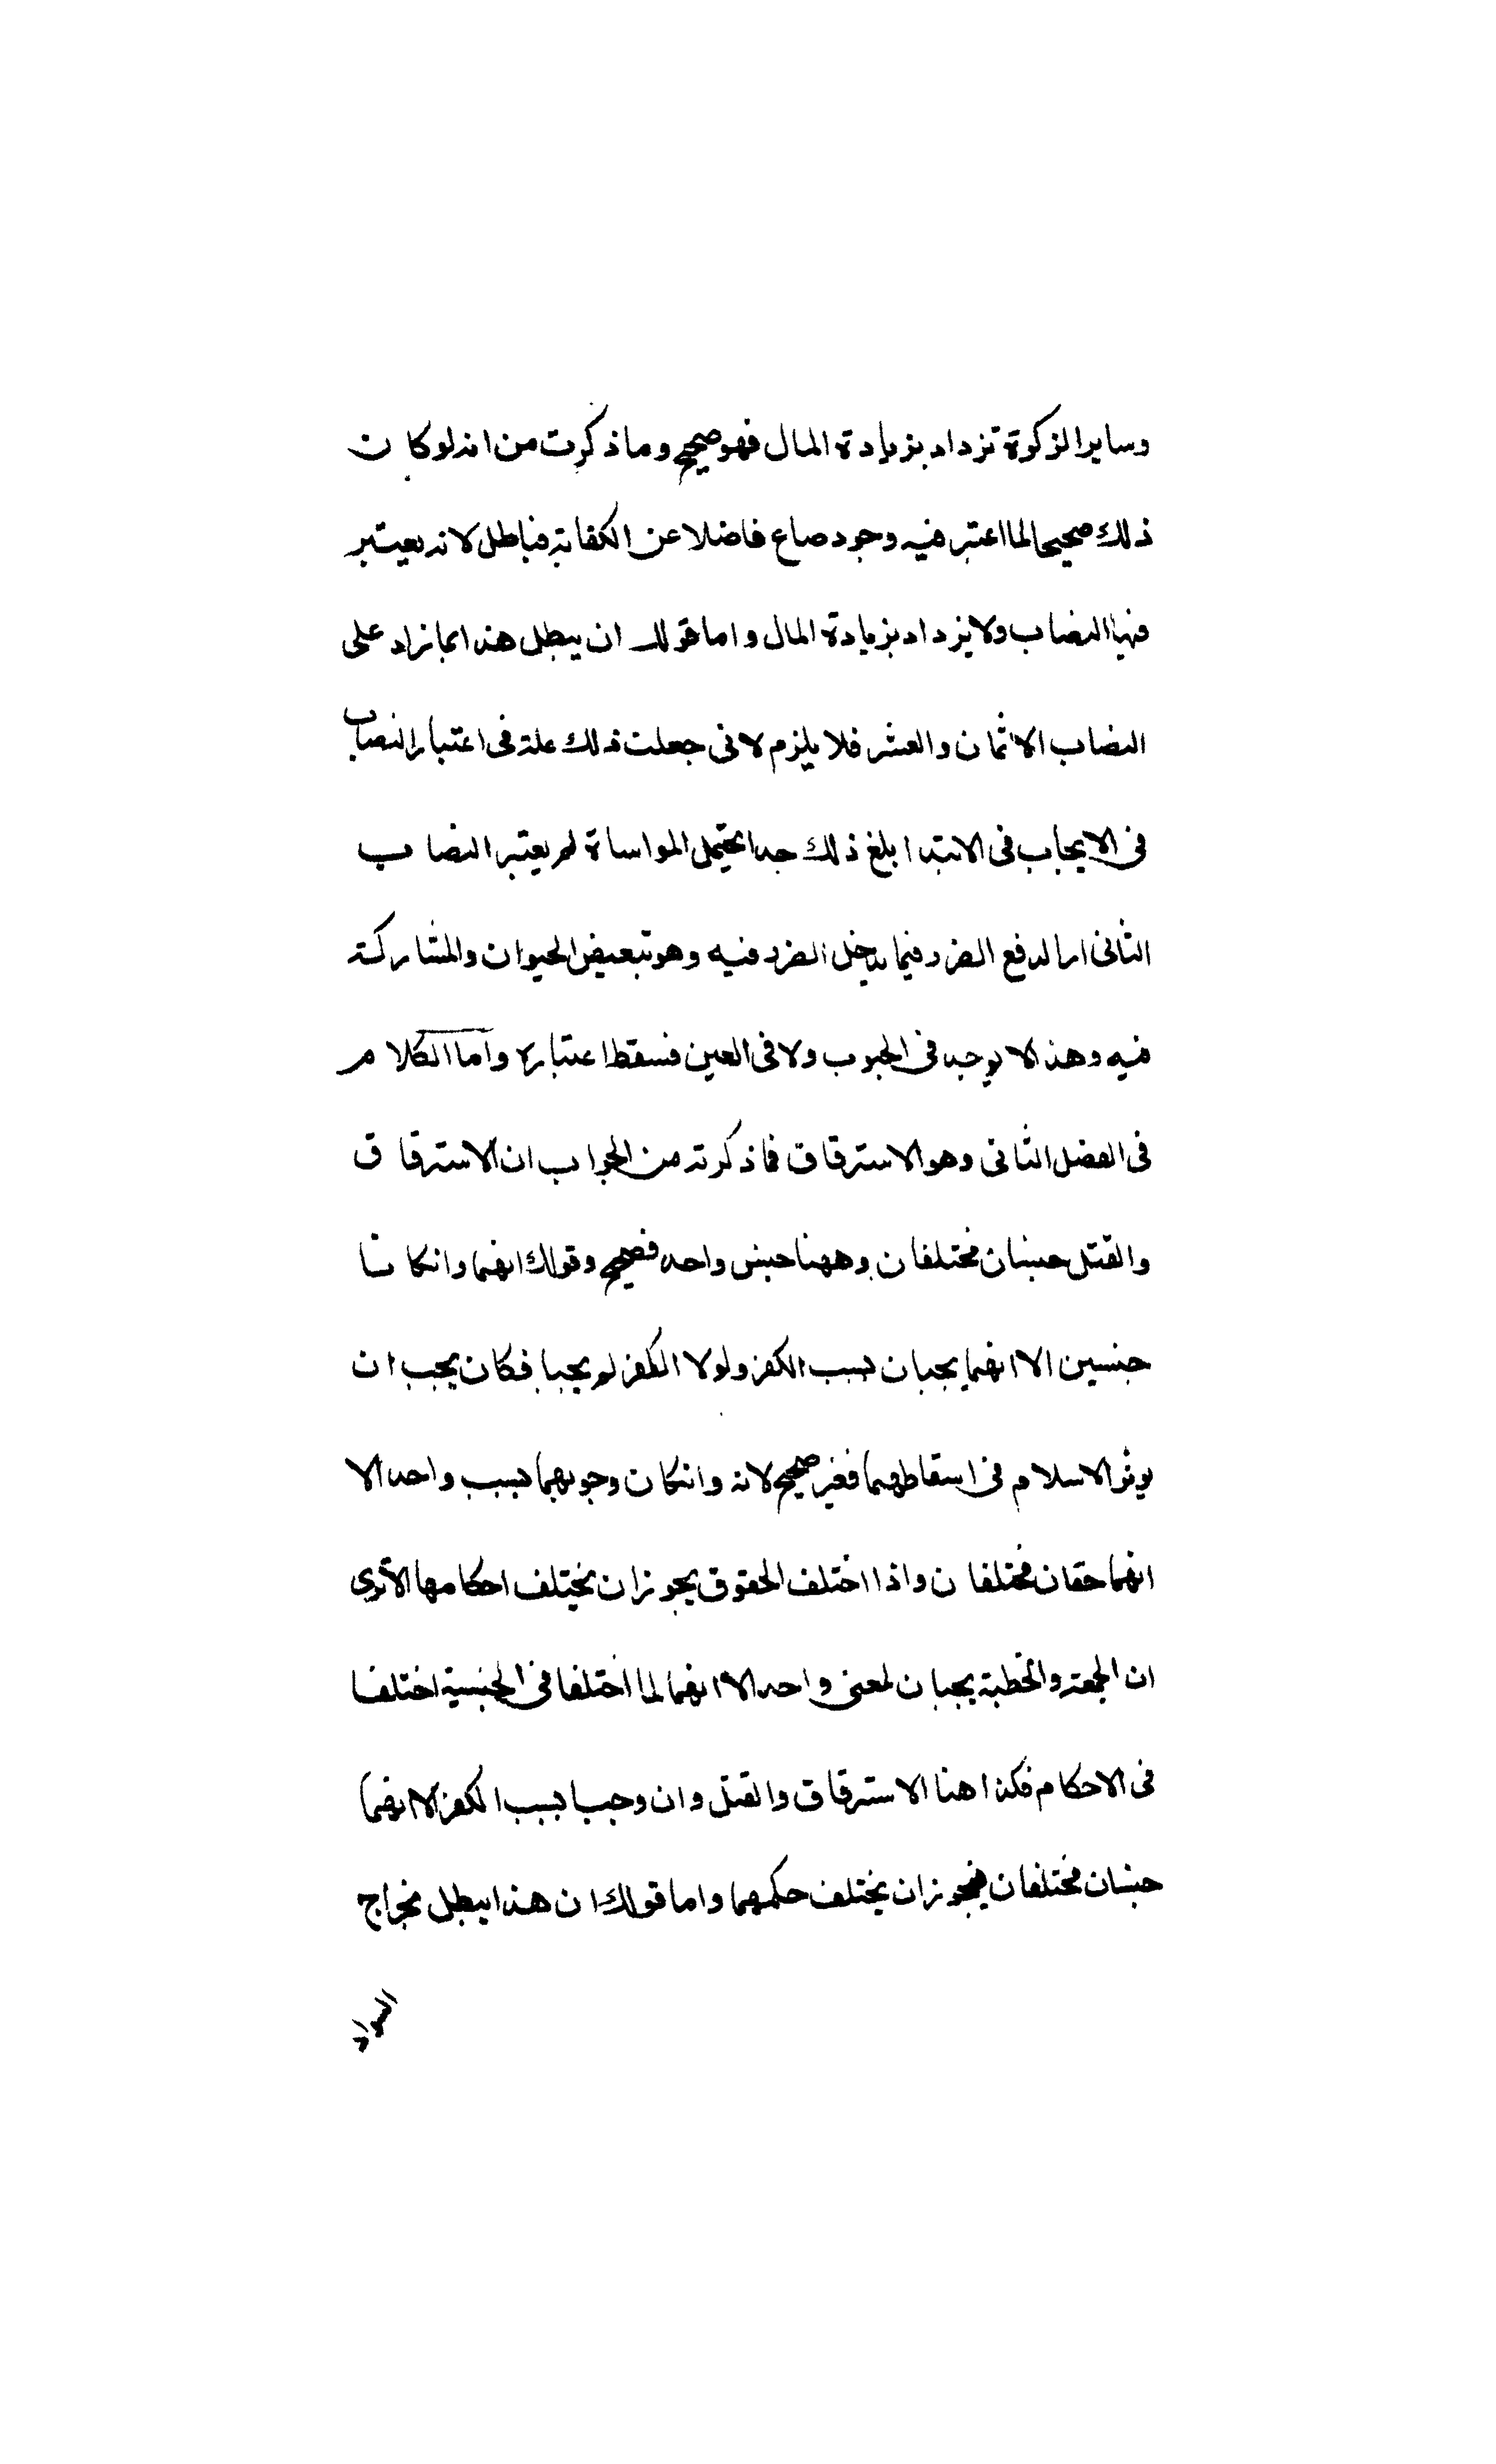 وساير الزكوة تزداد بزيادة المال فهو صحيح وما ذكرت من انه لو كان
ذلك صحيحا لما اعتبر فيه وجود صاع فاضلا عن الكفاية فباطل لانه يعتبر
فيها النصاب ولا يزداد بزيادة المال واما قولك ان يبطل هذا بما زاد على
النصاب الاثمان والعشر فلا يلزم لانى جعلت ذلك علة فى اعتبار النصاب
فى الايجاب فى الابتدا ابلغ ذلك حدا يحتمل المواساة لم يعتبر النصاب
الثانى اما لدفع الضرر فيما يدخل الضرر فيه وهو تبعيض الحيوان والمشاركة
فيه وهذا لا يوجد فى الحبوب ولا فى العين فسقط اعتباره واما الكلام
فى الفصل الثانى وهو الاسترقاق فما ذكرته من الجواب ان الاسترقاق
والقتل جنسان مختلفان وههنا جنس واحد فصحيح وقولك انهما وانكانا
جنسين الا انهما يجبان بسبب الكفر ولولا الكفر لم يجبا فكان يجب ان
يوثر الاسلام فى اسقاطهما فغير صحيح لانه وانكان وجوبهما بسبب واحد الا
انهما حقان مختلفان واذا اختلف الحقوق يجوز ان يختلف احكامها الا ترى
ان الجمعة والخطبة يجبان لمعنى واحد الا انهما لما اختلفا فى الجنسية اختلفا
فى الاحكام فكذا هنا الاسترقاق والقتل وان وجبا بسبب الكفر الا انهما
جنسان مختلفان فيجوز ان يختلف حكمهما واما قولك ان هذا يبطل بخراج